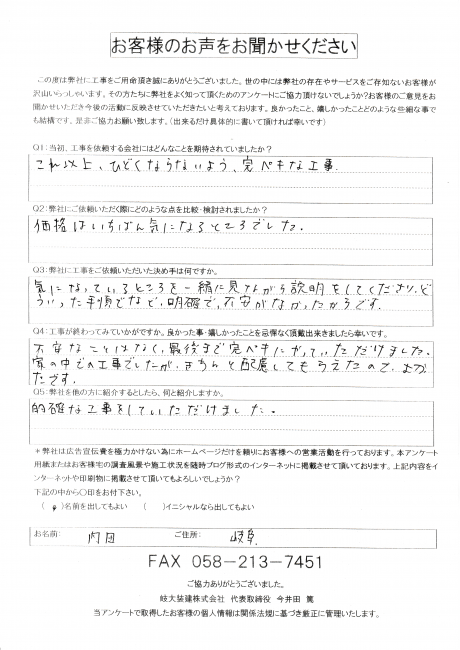 お客様のお声をお聞かせください
この度は弊社に工事をご用命頂き誠にありがとうございました。世の中には弊社の存在やサービスをご存知ないお客様が
沢山いらっしゃいます。その方たちに弊社をよく知って頂くためのアンケートにご協力頂けないでしょうか?お客様のご意見をお
聞かせいただき今後の活動に反映させていただきたいと考えております。良かったこと、嬉しかったことどのような些細な事で
も結構です、是非ご協力お願い致します。(出来るだけ具体的に書いて頂ければ幸いです)
Q1:当初、工事を依頼する会社にはどんなことを期待されていましたか?
これ以上、ひどくならないよう、完ペキな工事.
Q2:弊社にご依頼いただく際にどのような点を比較・検討されましたか?
価格はいちばん気になるところでした.
Q3:弊社に工事をご依頼いただいた決め手は何ですか。
気になっているところを一緒に見ながら説明をしてくださり、ど
ういった手順でなど、明確で、不安がなかったからです.
Q4:工事が終わってみていかがですか。良かった事・嬉しかったことを忌憚なく頂戴出来ましたら幸いです。
不安なことはなく、最後まで完ペキにやっていただけました.
家の中での工事でしたが、きちんと配慮してもらえたので、よかっ
たです.
Q5:弊社を他の方に紹介するとしたら、何と紹介しますか。
的確な工事をしていただけました.
*弊社は広告宣伝費を極力かけない為にホームページだけを頼りにお客様への営業活動を行っております。本アンケート
用紙またはお客様宅の調査風景や施工状況を随時ブログ形式のインターネットに掲載させて頂いております。上記内容をイ
ンターネットや印刷物に掲載させて頂いてもよろしいでしょうか?
下記の中から〇印をお付下さい。
( )名前を出してもよい ( )イニシャルなら出してもよい
お名前: 内田 ご住所: 岐阜
FAX 058-213-7451
ご協力ありがとうございました。
岐大装建株式会社 代表取締役 今井田 篤
当アンケートで取得したお客様の個人情報は関係法規に基づき厳正に管理いたします。